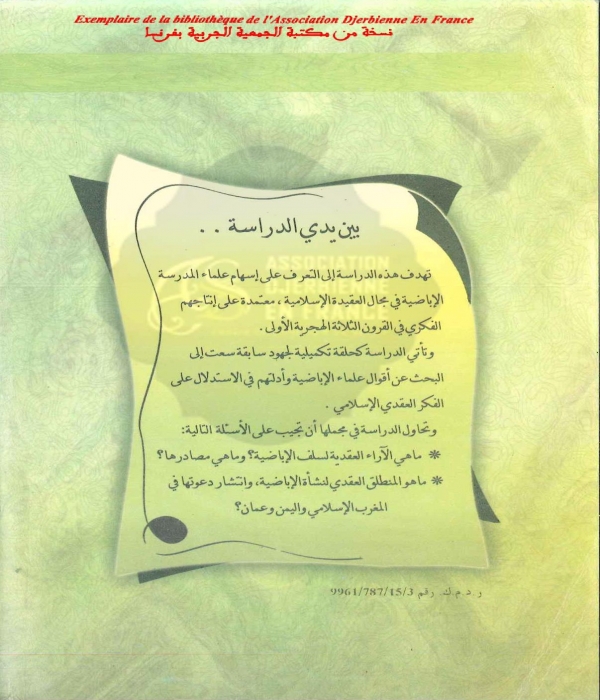 Exemplaire de la bibliothèque de l'Association Djerbienne En France
نسخة من مكتبة الجمعية الجربية بفرنسا
بين يدي الدراسة . .
تهدف هذه الدراسة إلى التعرف على إسهام علماء المدرسة
الإباضية في مجال العقيدة الإسلامية ، معتمدة على إنتاجهم
الفكري في القرون الثلاثة الهجرية الأولى .
وتأتي الدراسة كحلقة تكميلية لجهود سابقة سعت إلى
البحث عن أقوال علماء الإباضية وأدلتهم في الاستدلال على
الفكر العقدي الإسلامي .
وتحاول الدراسة في مجملها أن تجيب على الأسئلة التالية:
* ماهي الآراء العقدية لسلف الإباضية؟ وماهي مصادرها؟
* ماهو المنطلق العقدي لنشأة الإباضية، وانتشار دعوتها في
المغرب الإسلامي واليمن وعمان؟
ر . د . م . ك. رقم 9961/787/15/3
ASSOCIATION
DJERBIENNE
EN FRANCE